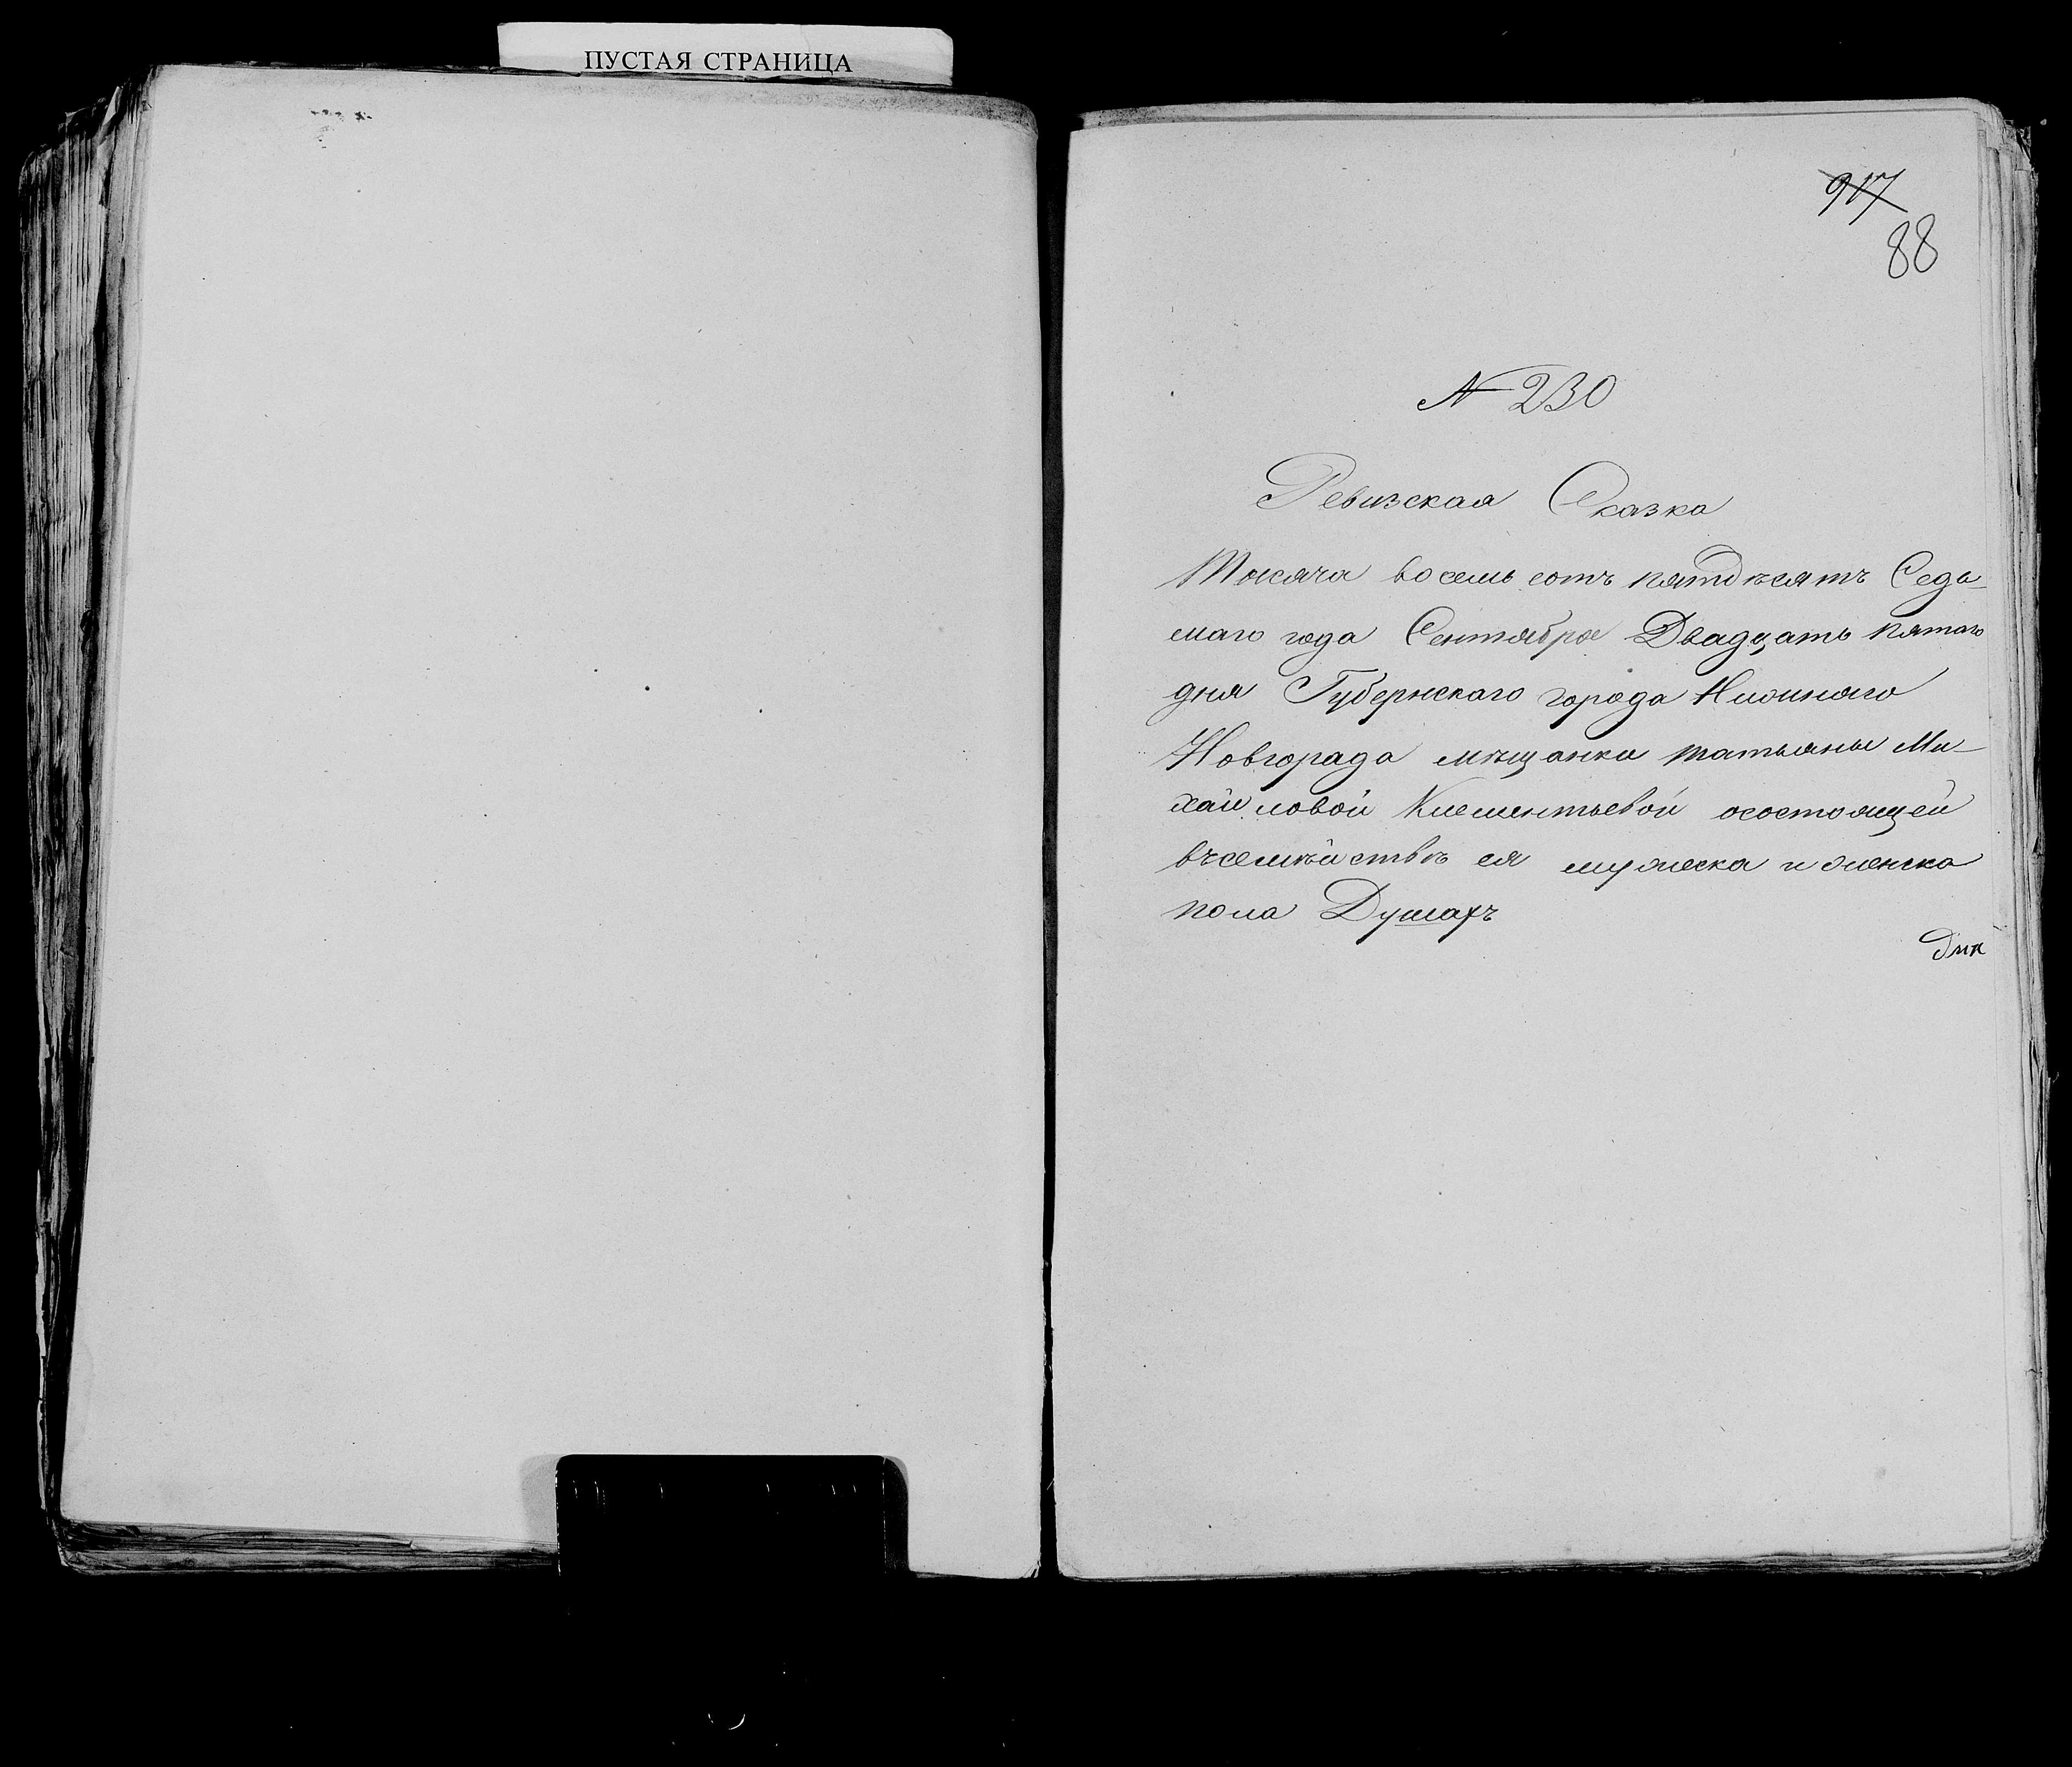 ПУСТАЯ СТРАНИЦА
917
88
N 230
Ревизская Сказка
Тысяча восемь сотъ пятдѣсятъ Седь-
маго года Сентября Двадцать пятаго
дня Губернскаго города Нижняго
Новгорада мѣщанки татьяны Ми-
хайловой Клементьевой осостоящей
въсемѣйствѣ ея мужеска и женска
пола Душахъ